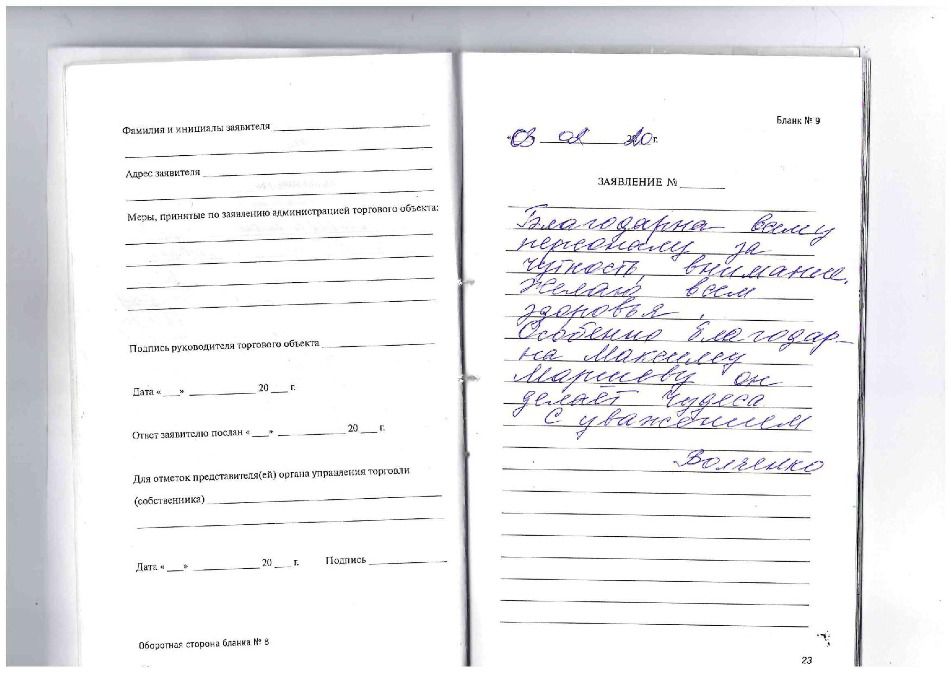 Фамилия и инициалы заявителя
Адрес заявителя
Меры, принятые по заявлению администрацией торгового объекта:
Подпись руководителя торгового объекта
Дата «___» ____________ 20 ___ г.
Ответ заявителю послан «___» ____________ 20 ___ г.
Для отметок представителя(ей) органа управления торговли
(собственника)
Дата «___» ____________ 20 ___ г. Подпись
Оборотная сторона бланка № 8
Бланк № 9
02 20 г.
ЗАЯВЛЕНИЕ №
Благодарна всему
персоналу за
чуткость, внимание.
Желаю всем
здоровья.
Особенно благодар-
на Максиму
он
делает чудеса
С уважением
23